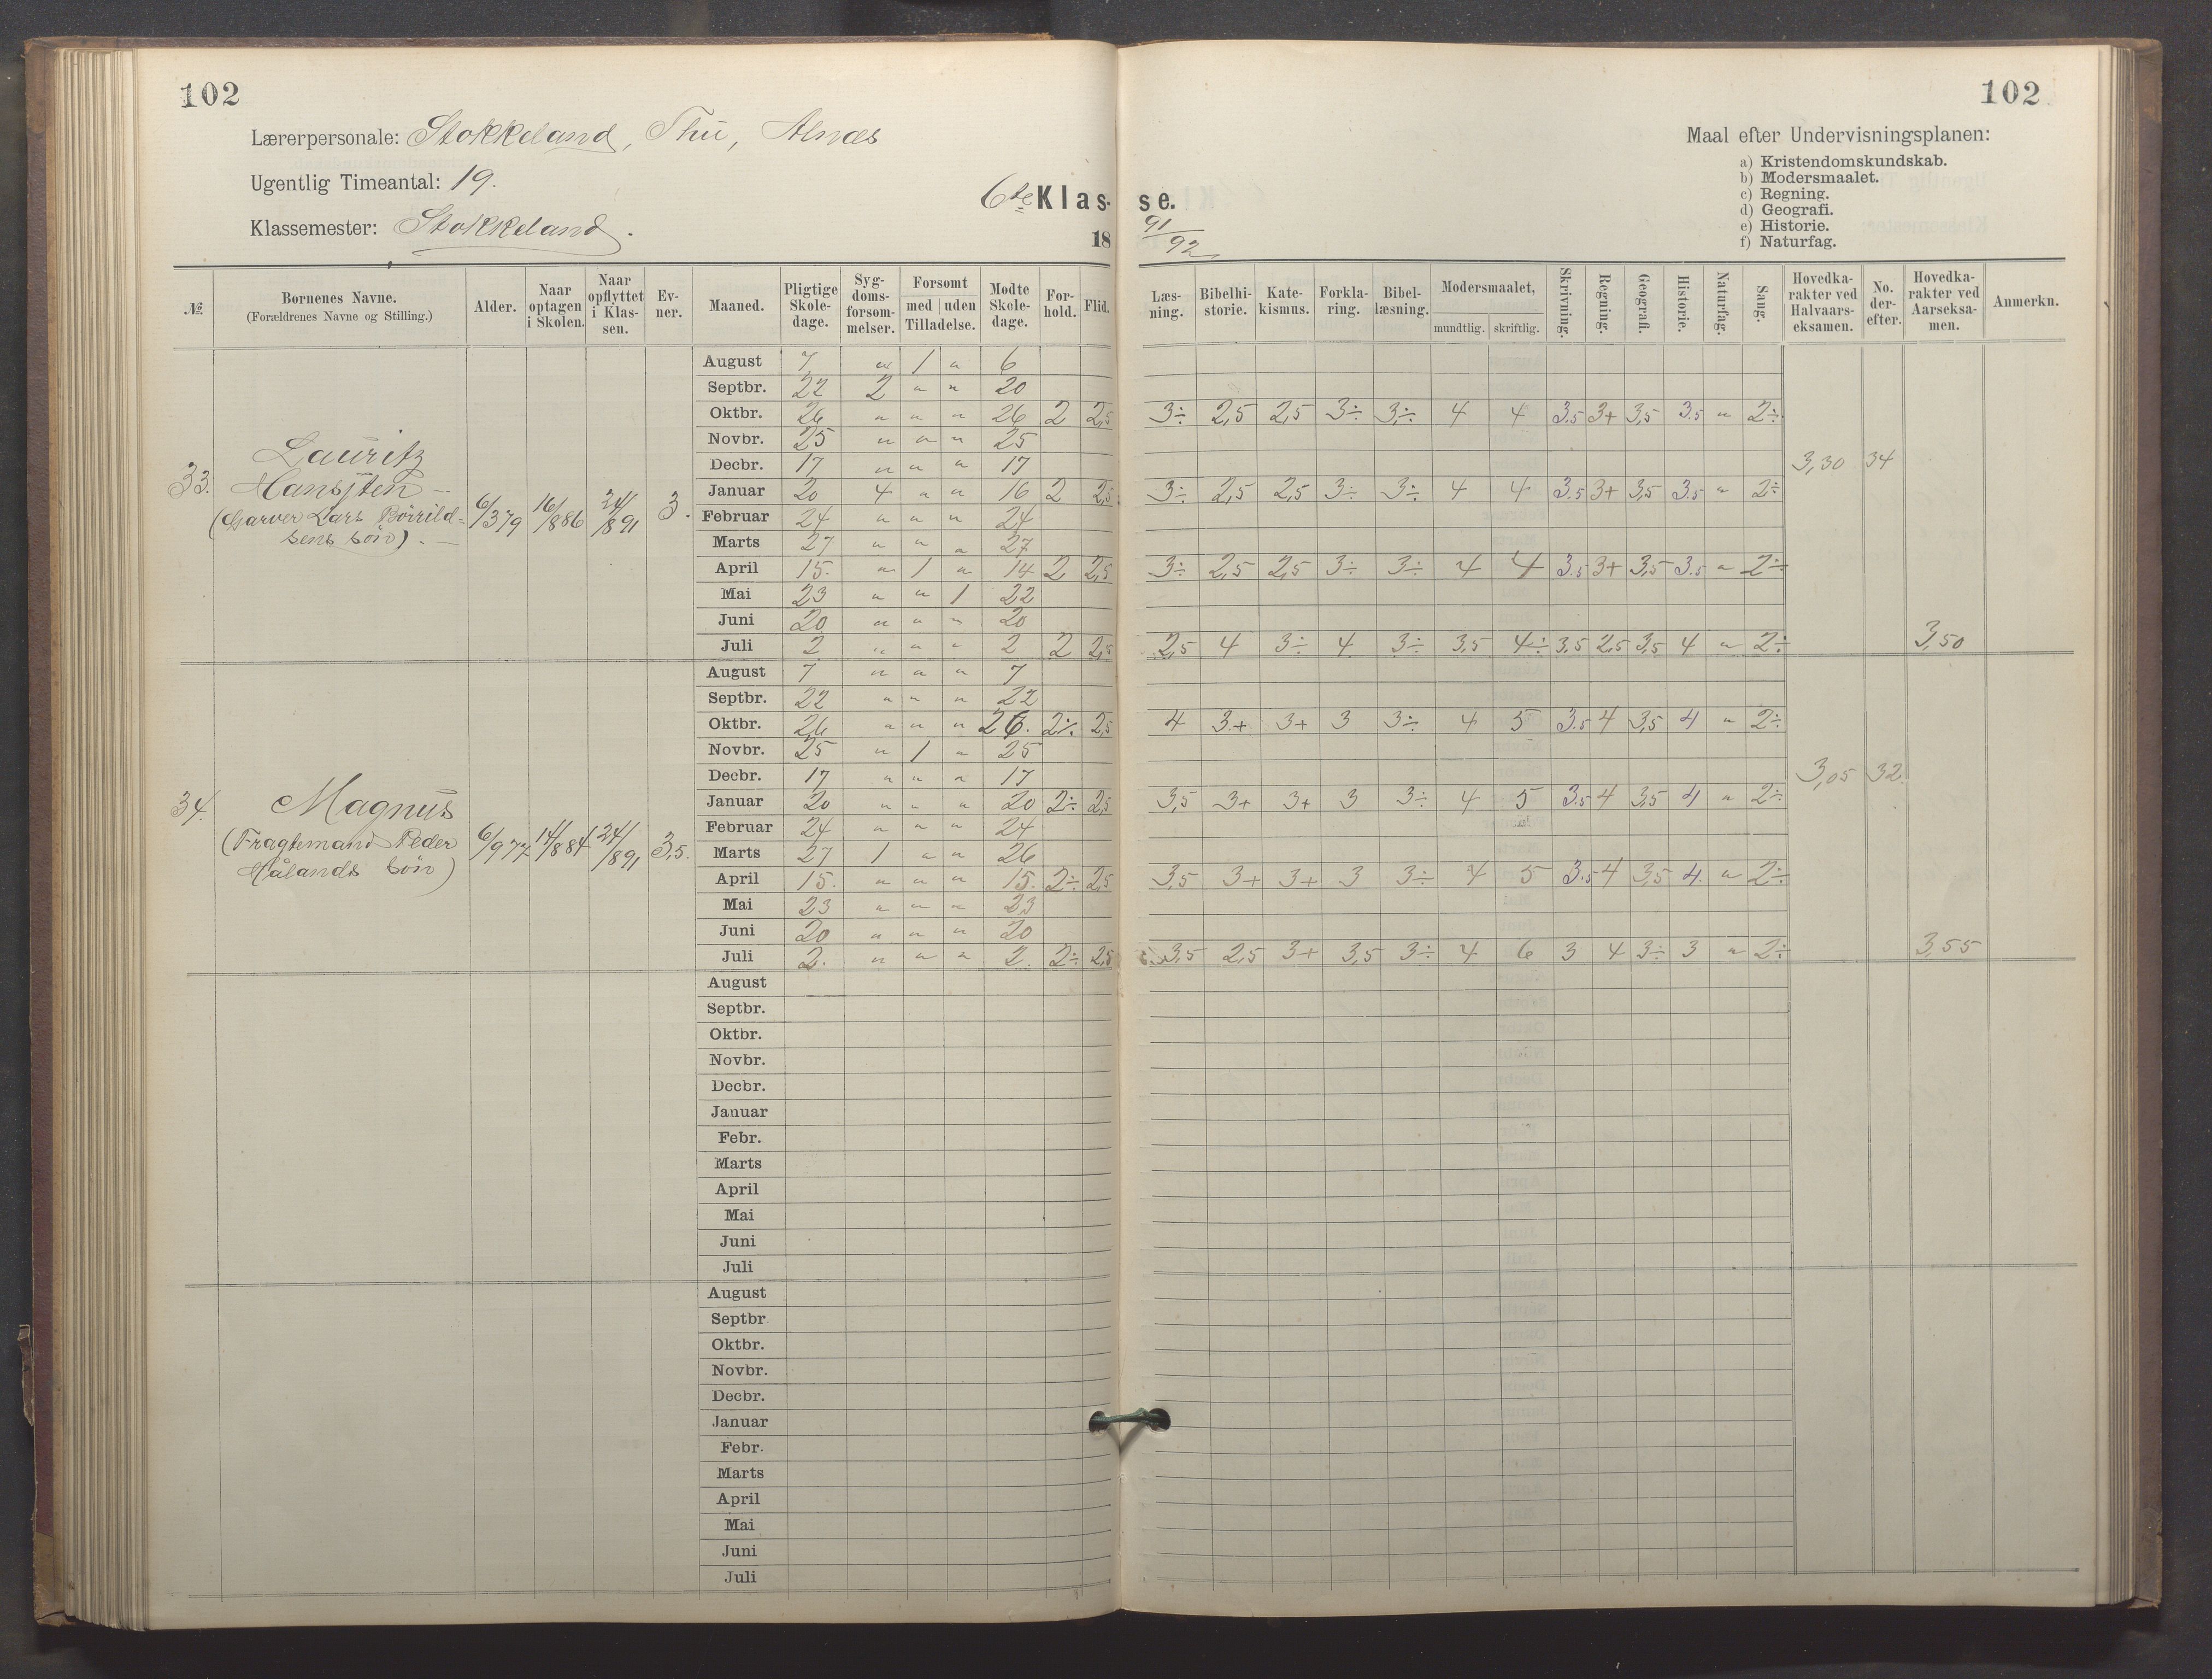 102
Lærerpersonale: Stokkeland, Thu, Alnæs
Ugentlig Timeantal: 19.
Klassemester: Stokkeland.
102
Maal efter Undervisningsplanen:
a) Kristendomskundskab.
b) Modersmaalet.
c) Regning.
d) Geografi.
e) Historie.
f) Naturfag.
6te Klasse.
18 91/92
№ Børnenes Navne. (Forældrenes Navne og Stilling.) Alder. Naar optagen i Skolen. Naar opflyttet i Klassen. Evner. Maaned. Pligtige Skoledage. Sygdomsforsømmelser. Forsømt med uden Tilladelse. Mødte Skoledage. Forhold. Flid. Læsning. Bibelhistorie. Katekismus. Forklaring. Bibellæsning. Modersmaalet, mundtlig. skriftlig. Skrivning. Regning. Geografi. Historie. Naturfag. Sang. Hovedkarakter ved Halvaarseksamen. No. derefter. Hovedkarakter ved Aarseksamen. Anmerkn.
33. Lauritz
Hanssten
(Garver Lars Börrildsens sön).
6/3 79 16/8 86 24/8 91 3.
August 7 " 1 " 6
Septbr. 22 2 " " 20
Oktbr. 26 " " " 26 2 2,5 3÷ 2,5 2,5 3÷ 3÷ 4 4 3.5 3+ 3,5 3.5 " 2÷
Novbr. 25 " " " 25
Decbr. 17 " " " 17 3,30 34
Januar 20 4 " " 16 2 2,5 3÷ 2,5 2,5 3÷ 3÷ 4 4 3.5 3+ 3,5 3.5 " 2÷
Februar 24 " " " 24
Marts 27 " " " 27
April 15. " 1 " 14 2 2,5 3÷ 2,5 2,5 3÷ 3÷ 4 4 3.5 3+ 3,5 3.5 " 2÷
Mai 23 " " 1 22
Juni 20 " " " 20
Juli 2 " " " 2 2 2,5 2,5 4 3÷ 4 3÷ 3,5 4÷ 3,5 2,5 3,5 4 " 2÷ 3,50
34. Magnus
(Fragtemand Peder
Hålands sön)
6/9 77 14/8 84 24/8 91 3,5.
August 7 " " " 7
Septbr. 22 " " " 22
Oktbr. 26 " " " 26. 2÷ 2,5 4 3+ 3+ 3 3÷ 4 5 3.5 4 3,5 4 " 2÷
Novbr. 25 " 1 " 25
Decbr. 17 " " " 17 3,05 32.
Januar 20 " " " 20 2÷ 2,5 3,5 3+ 3+ 3 3÷ 4 5 3.5 4 3,5 4 " 2÷
Februar 24 " " " 24
Marts 27 1 " " 26
April 15. " " " 15. 2÷ 2,5 3,5 3+ 3+ 3 3÷ 4 5 3.5 4 3,5 4. " 2÷
Mai 23 " " " 23
Juni 20 " " " 20
Juli 2. " " " 2. 2÷ 2,5 3,5 2,5 3+ 3,5 3÷ 4 6 3 4 3÷ 3 " 2÷ 3,55
August
Septbr.
Oktbr.
Novbr.
Decbr.
Januar
Febr.
Marts
April
Mai
Juni
Juli
August
Septbr
Oktbr.
Novbr.
Decbr.
Januar
Febr.
Marts
April
Mai
Juni
Juli